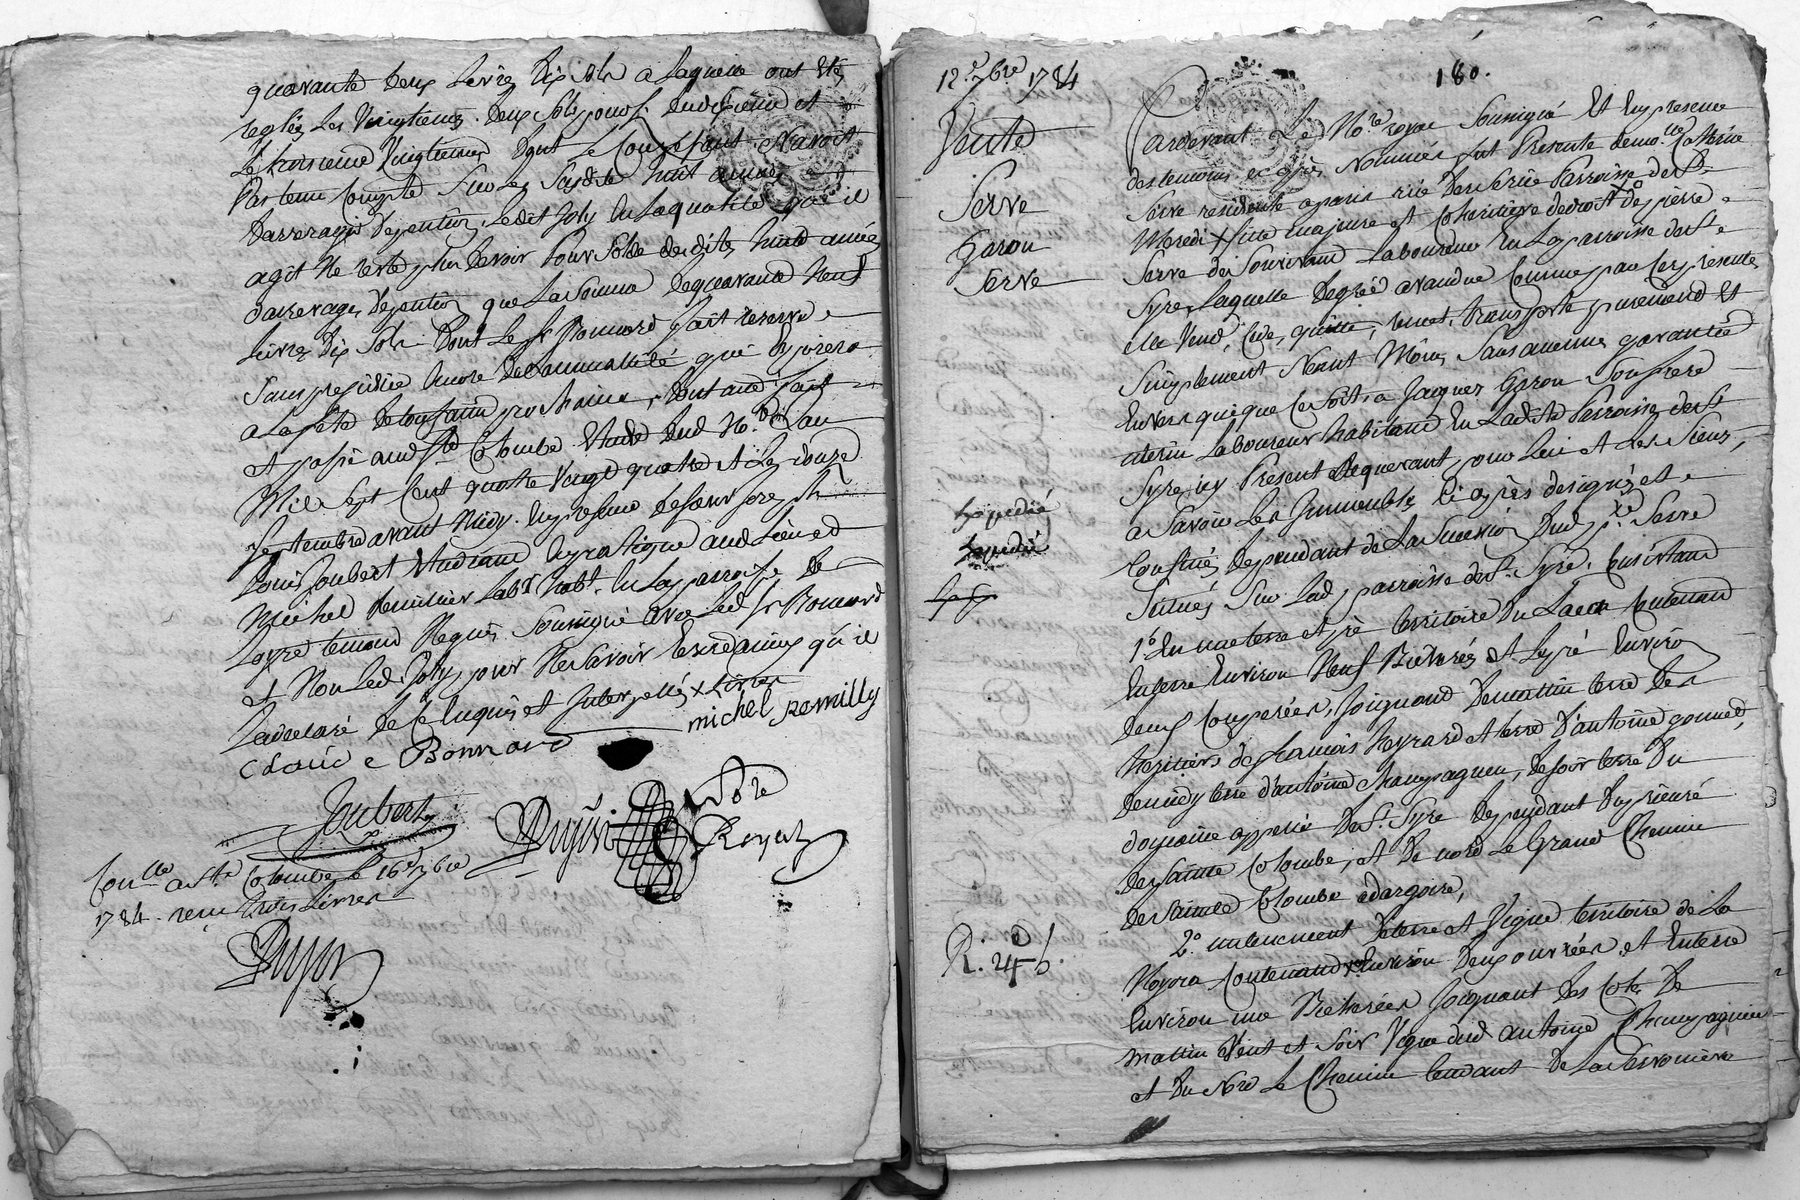 quarante deux Livres dix sols a laquelle ont été
reglées Les Vingtiemes. deux sols pour L. du dixieme et
Le troisieme Vingtieme dont Le Confessant N'avoit
Pas tenu Compte sur Les susdites huit années
darrerages de pention, Ledit Joly en La qualité qu'il
agit Ne reste plus devoir Pour Solde desdites huit années
darrerages de pention que La Somme de quarante Neuf
Livres Dix Sols Dont Le Sr Bonnard fait reserve
Sans prejudice Encore de L'annuallité qui Echerra
a La fête de toussaint prochaine, dont acte fait
et passé aud Ste Colombe Etude dud No.re L'an
Mil Sept Cent quatre Vingt quatre et Le douze
Septembre avant Midy. En presence de Sieur
Louis Joubert Etudiant En pratique aud Lieu et
Michel Remillier Lab.r hab.t En La parroisse de
temoins Requis Soussigné avec Led Sr Bonnard
et Non Led Joly pour Ne Savoir Ecrire ainsy qu'il
L'a declaré de Ce Enquis et Interpellé
Claude Bonnard michel remilly
Joubert Dujon No.re Royal
Con.lle a Ste Colombe Le 16e 7bre
1784. recu Trois Livres
Dujon
12e 7bre 1784
Vente
Serve
Garon
Serve
Expedié
Expedié
R. 24
180.
Pardevant Le No.re royal Soussigné Et En presence
des temoins cy après Nommés fut Presente demo.lle Catherine
Serve residente a paris rüe Parroisse de St
Mederic fille majeure et Coheritiere de droit de pierre
Serve de Son vivant Laboureur En La parroisse de St
Syre, Laquelle de gré a vandue Comme par Ces presentes
Elle Vend, Cede, quitte, remet, transporte purement Et
Simplement Neant Moins Sans aucune garantie
Envers qui que Ce Soit, a Jaques Garon Son frere
uterin Laboureur habitant En Ladite Parroisse de St
Syre, icy Present acquerant pour Lui et Les Siens,
a Savoir Les Immeubles Ci après designés et
Confinés, dependant de La Succession dud p.re Serve
Situés Sur Lad parroisse de St. Syre. Consistant
1° En une terre et pré territoire du Contenant
En terre Environ Neuf Bicherées et Le pré Environ
deux Couperées, Joignant de matin terre des
heritiers de francois Peyrard et terre d'antoine
de midy terre d'antoine Champagneu, de Soir terre du
domaine appellé de St. Syre dependant du prieuré
de Sainte Colombe, et de nord Le Grand Chemin
de Sainte Colombe a dargoire,
2° un tenement de terre et Vigne territoire de La
Contenant Environ deux ouvrées et En terre
Environ une Bicherée Joignant des Cotés de
matin Vent et Soir Vigne dud antoine Champagneu
et du Nord Le Chemin tendant de La